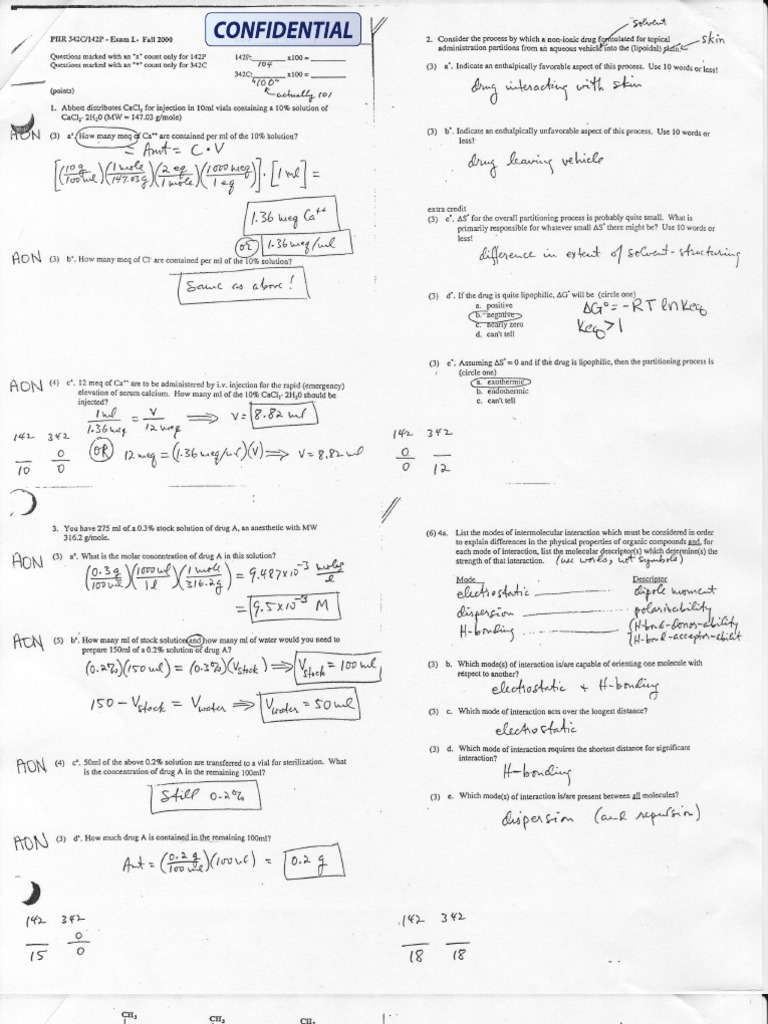 CONFIDENTIAL
PHR 342C/142P - Exam I - Fall 2000
Questions marked with an "x" count only for 142P
Questions marked with an "*" count only for 342C
142P: 104 x100 =
342C: "100" x100 =
actually 101
(points)
1. Abbott distributes CaCl2 for injection in 10ml vials containing a 10% solution of
CaCl2 · 2H20 (MW = 147.03 g/mole)
AON (3) ax. How many meq of Ca++ are contained per ml of the 10% solution?
= Amt = C · V
[(10g/100ml)(1 mole/147.03g)(2 eq/1 mole)(1000 meq/1 eq)] · [1 ml] =
1.36 meq Ca++
OR 1.36 meq/ml
AON (3) bx. How many meq of Cl- are contained per ml of the 10% solution?
Same as above!
AON (4) cx. 12 meq of Ca++ are to be administered by i.v. injection for the rapid (emergency)
elevation of serum calcium. How many ml of the 10% CaCl2 · 2H20 should be
injected?
1 ml/1.36 meq = V/12 meq ⟹ V = 8.82 ml
OR 12 meq = (1.36 meq/ml)(V) ⟹ V = 8.82 ml
142 342
0
10 0
3. You have 275 ml of a 0.3% stock solution of drug A, an anesthetic with MW
316.2 g/mole.
AON (3) ax. What is the molar concentration of drug A in this solution?
(0.3g/100ml)(1000ml/1l)(1 mole/316.2g) = 9.487x10-3 moles/l
= 9.5x10-3 M
AON (5) bx. How many ml of stock solution and how many ml of water would you need to
prepare 150ml of a 0.2% solution of drug A?
(0.2%)(150 ml) = (0.3%)(Vstock) ⟹ Vstock = 100 ml
150 - Vstock = Vwater ⟹ Vwater = 50 ml
AON (4) cx. 50ml of the above 0.2% solution are transferred to a vial for sterilization. What
is the concentration of drug A in the remaining 100ml?
Still 0.2%
AON (3) dx. How much drug A is contained in the remaining 100ml?
Amt = (0.2 g/100 ml)(100 ml) = 0.2 g
142 342
0
15 0
solvent
2. Consider the process by which a non-ionic drug formulated for topical
administration partitions from an aqueous vehicle into the (lipoidal) skin.
skin
(3) a*. Indicate an enthalpically favorable aspect of this process. Use 10 words or less!
drug interacting with skin
(3) b*. Indicate an enthalpically unfavorable aspect of this process. Use 10 words or
less!
drug leaving vehicle
extra credit
(3) c*. ΔS° for the overall partitioning process is probably quite small. What is
primarily responsible for whatever small ΔS° there might be? Use 10 words or
less!
difference in extent of solvent-structuring
(3) d*. If the drug is quite lipophilic, ΔG° will be (circle one)
a. positive
b. negative
c. nearly zero
d. can't tell
ΔG° = -RT ln Keq
Keq > 1
(3) e*. Assuming ΔS° = 0 and if the drug is lipophilic, then the partitioning process is
(circle one)
a. exothermic
b. endothermic
c. can't tell
142 342
0
0 12
(6) 4a. List the modes of intermolecular interaction which must be considered in order
to explain differences in the physical properties of organic compounds and, for
each mode of interaction, list the molecular descriptor(s) which determine(s) the
strength of that interaction. (use words, not symbols)
Mode Descriptor
electrostatic dipole moment
dispersion polarizability
H-bonding (H-bond-donor-ability
(H-bond-acceptor-abilit
(3) b. Which mode(s) of interaction is/are capable of orienting one molecule with
respect to another?
electrostatic & H-bonding
(3) c. Which mode of interaction acts over the longest distance?
electrostatic
(3) d. Which mode of interaction requires the shortest distance for significant
interaction?
H-bonding
(3) e. Which mode(s) of interaction is/are present between all molecules?
dispersion (and repulsion)
142 342
18 18
CH3 CH3 CH3